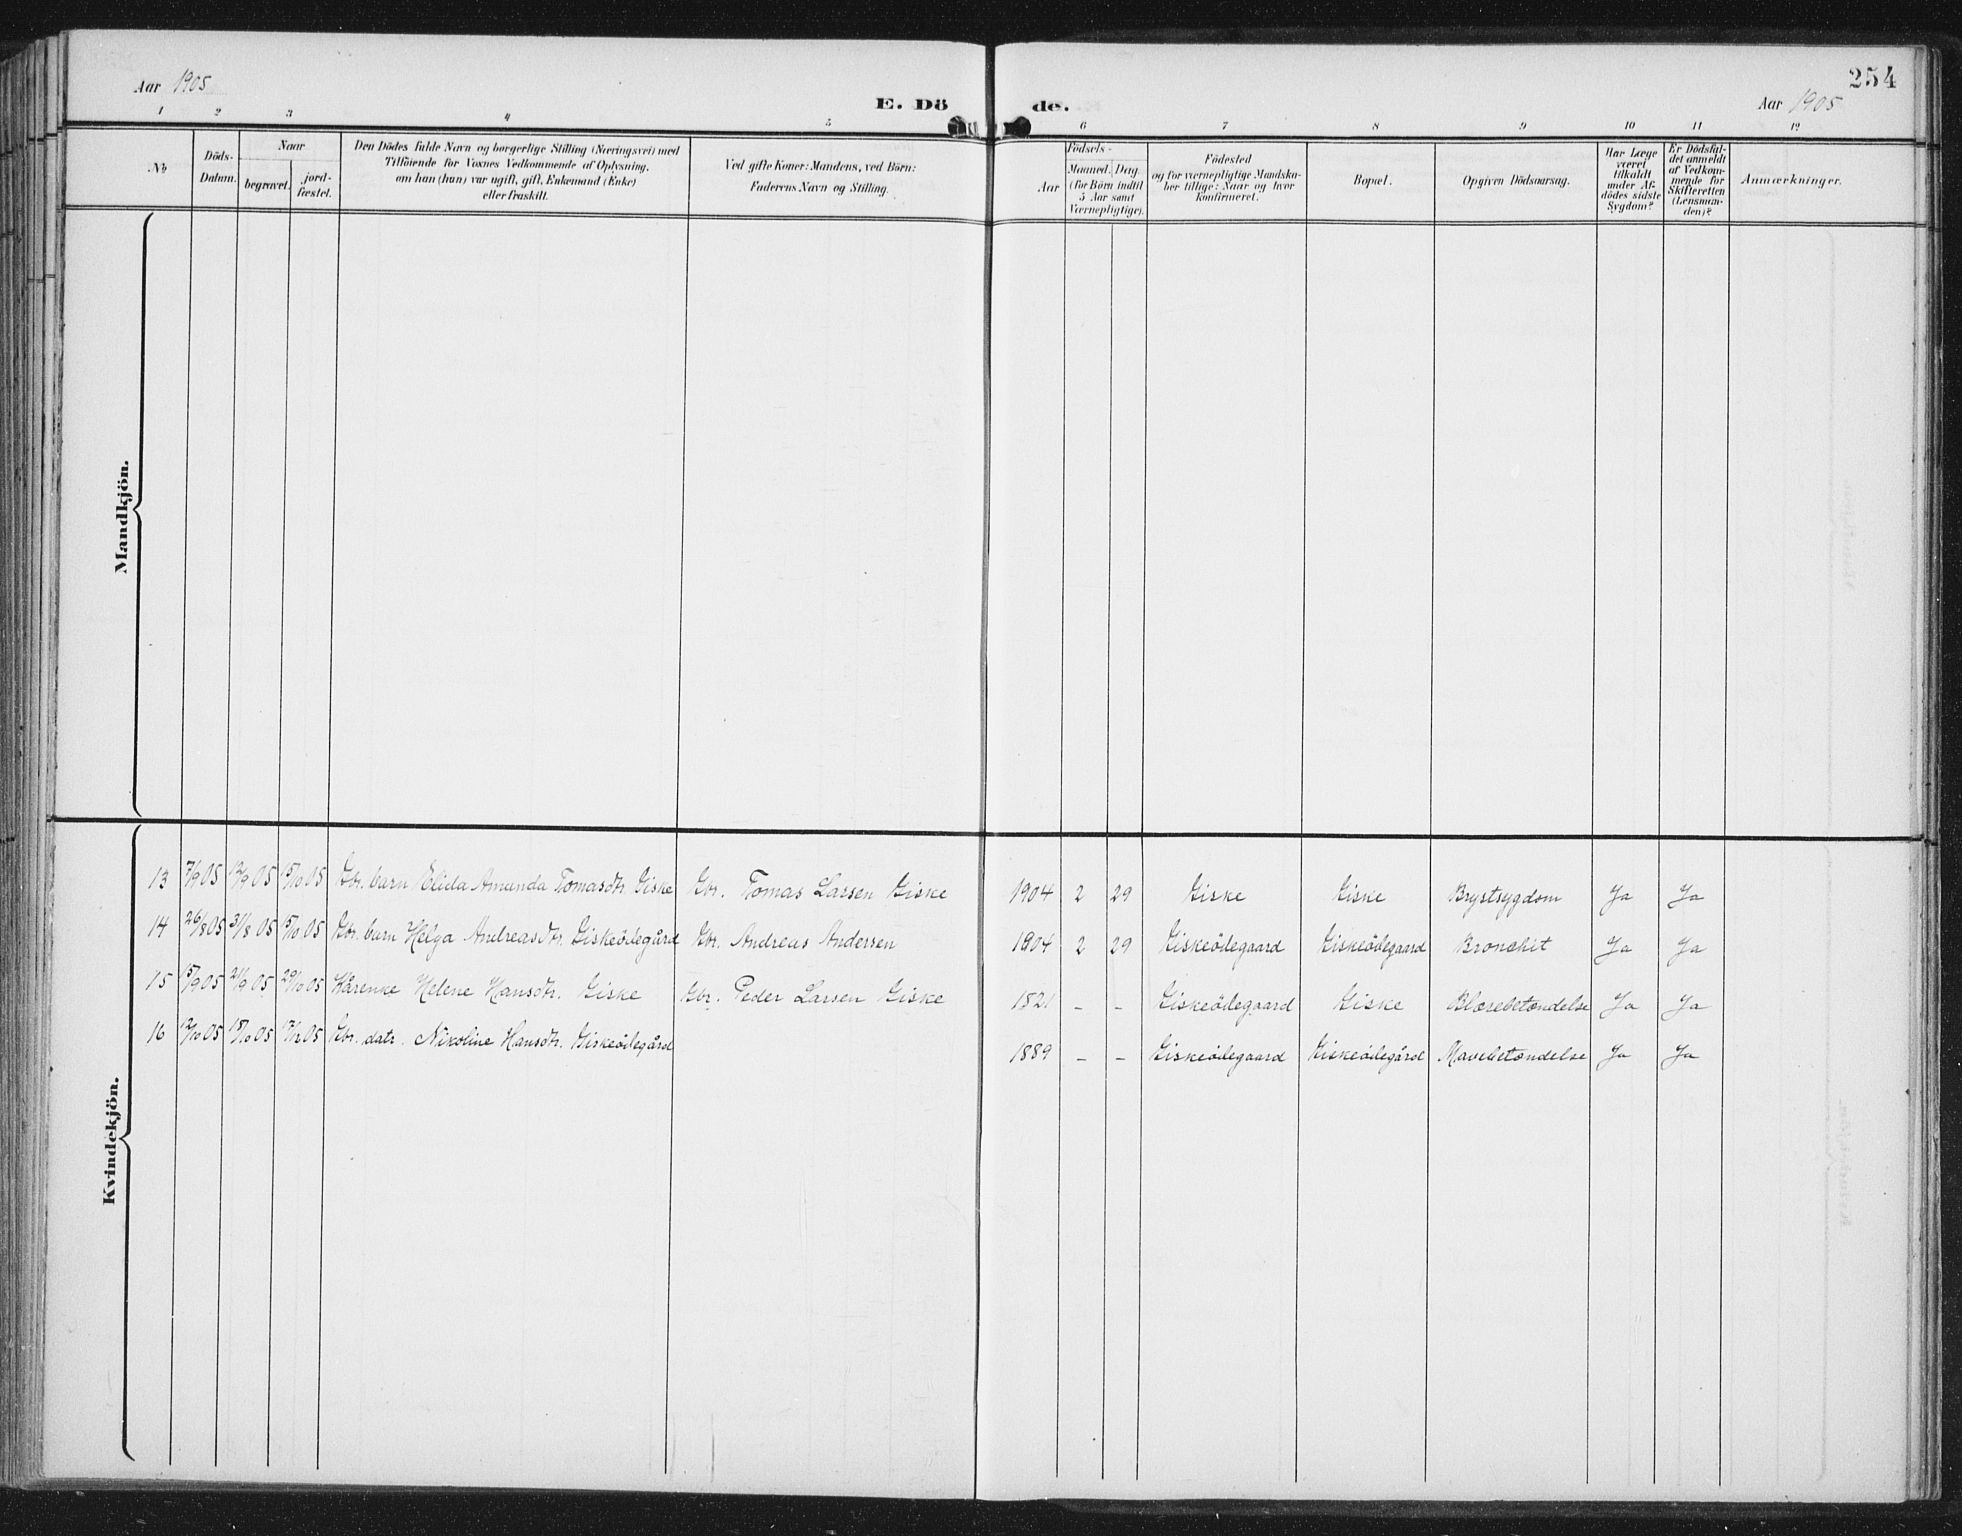 Aar 1905
E. Dö de.
254
Aar 1905
1 2 3 4 5 6 7 8 9 10 11 12
No.
Döds-
Datum.
Naar
begravet.
jord-
fæstet.
Den Dödes fulde Navn og borgerlige Stilling (Næringsvei) med
Tilföiende for Voxnes Vedkommende af Oplysning,
om han (hun) var ugift, gift, Enkemand (Enke)
eller fraskilt.
Ved gifte Koner: Mandens, ved Börn:
Faderens Navn og Stilling.
Födsels-
Aar
Maaned. Dag
(for Börn indtil
5 Aar samt
Værnepligtige).
Födested
og for værnepligtige Mandska-
ber tillige: Naar og hvor
konfirmeret.
Bopæl.
Opgiven Dödsaarsag.
Har Læge
været
tilkaldt
under Af-
dödes sidste
Sygdom?
Er Dödsfal-
det anmeldt
af Vedkom-
mende for
Skifteretten
(Lensman-
den)?
Anmærkninger.
Mandkjön.
Kvindekjön.
13 7/9 05 12/9 05 15/10 05 Gbr. barn Elida Amunda Tomasdtr. Giske Gbr. Tomas Larsen Giske 1904 2 29 Giske Giske Brystsygdom Ja Ja
14 26/8 05 31/8 05 15/10 05 Gbr. barn Helga Andreasdtr. Giskeödegård Gbr. Andreas Andersen 1904 2 29 Giskeödegaard Giskeödegaard Bronchit Ja Ja
15 15/9 05 21/9 05 29/10 05 Kårenke Helene Hansdtr. Giske Gbr. Peder Larsen Giske 1821 - - Giskeödegaard Giske Blærebetændelse Ja Ja
16 12/10 05 15/10 05 17/12 05 Gbr. datr. Nikoline Hansdtr. Giskeödegård 1889 - - Giskeödegaard Giskeödegård Mavebetændelse Ja Ja